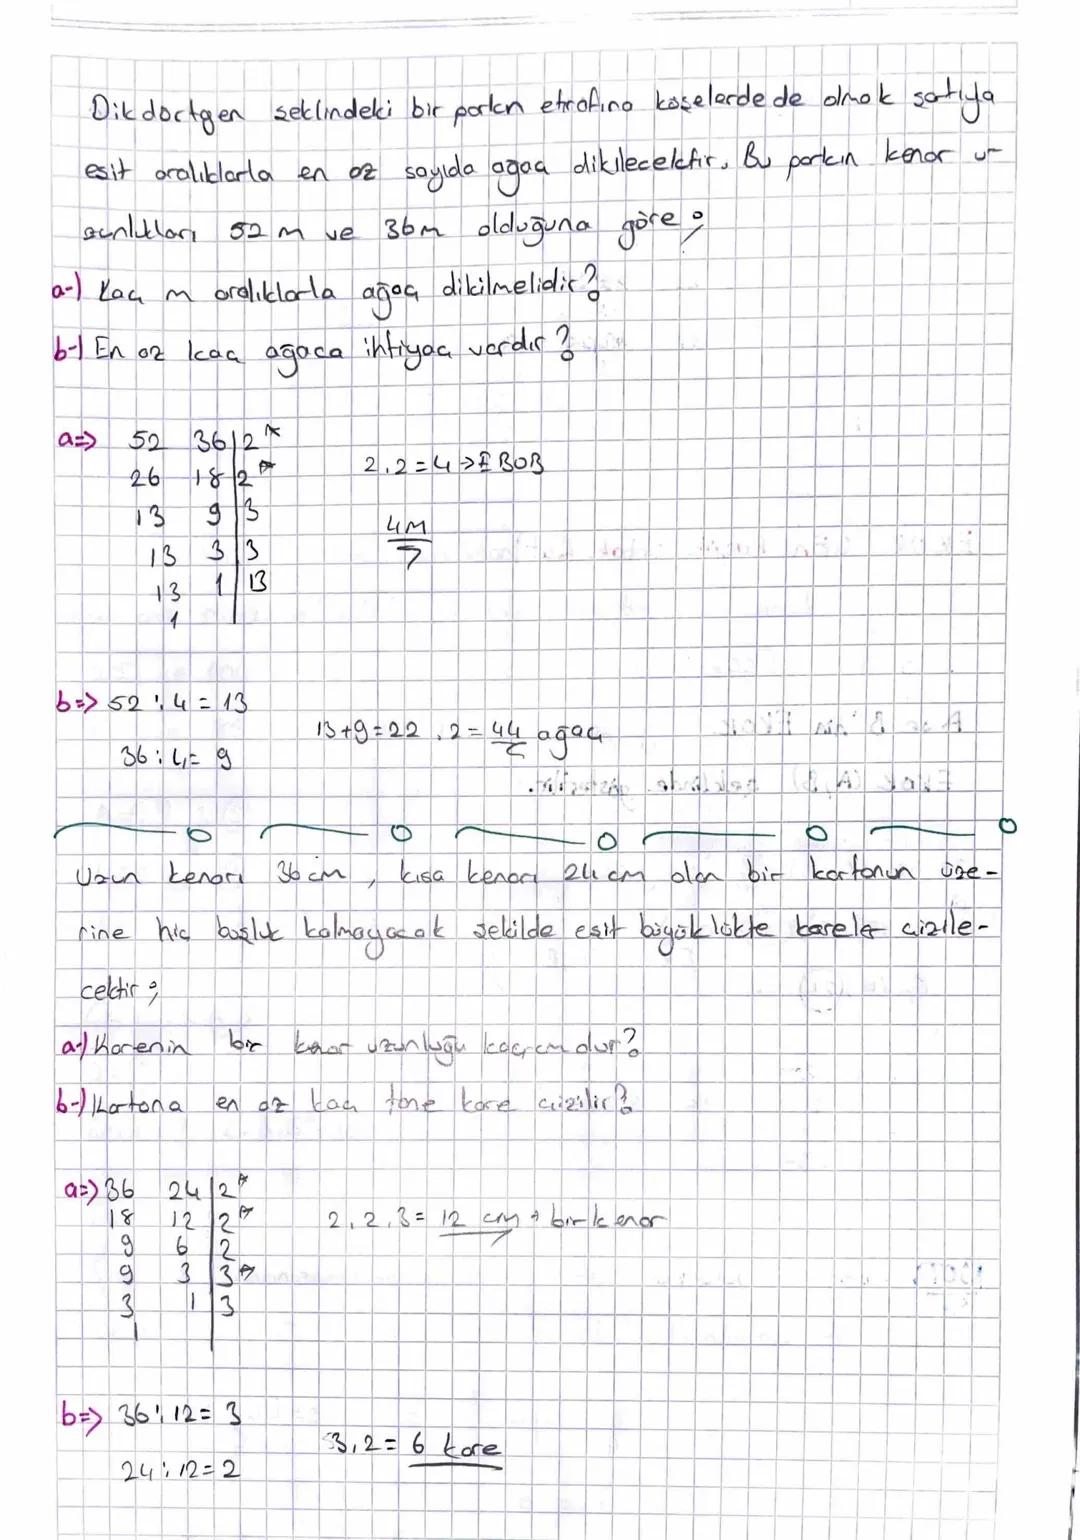 Dikdörtgen şeklindeki bir parkın etrafına köşelerde de olmak şartıyla
eşit aralıklarla en az sayıda ağaç dikilecektir. Bu parkın kenar u-
zunlukları 52 m ve 36m olduğuna göre;
a-) Kaç m aralıklarla ağaç dikilmelidir?
b-) En az kaç ağaca ihtiyaç vardır?
a=> 52 36|2*
26 18|2*
13 9|3
13 3|3
13 1|13
1
2.2=4->EBOB
4M
b=> 52:4=13
36:4=9
13+9=22.2=44 ağaç
Uzun kenarı 36cm, kısa kenarı 24cm olan bir kartonun üze-
rine hiç boşluk kalmayacak şekilde eşit büyüklükte kareler çizile-
cektir;
a-) Karenin bir kenar uzunluğu kaç cm dur?
b-) Kartona en az kaç tane kare çizilir?
a=> 36 24|2*
18 12|2*
9 6|2
9 3|3*
3 1|3
1
2.2.3=12 cm -> bir kenar
b=> 36:12=3
24:12=2
3.2=6 kare